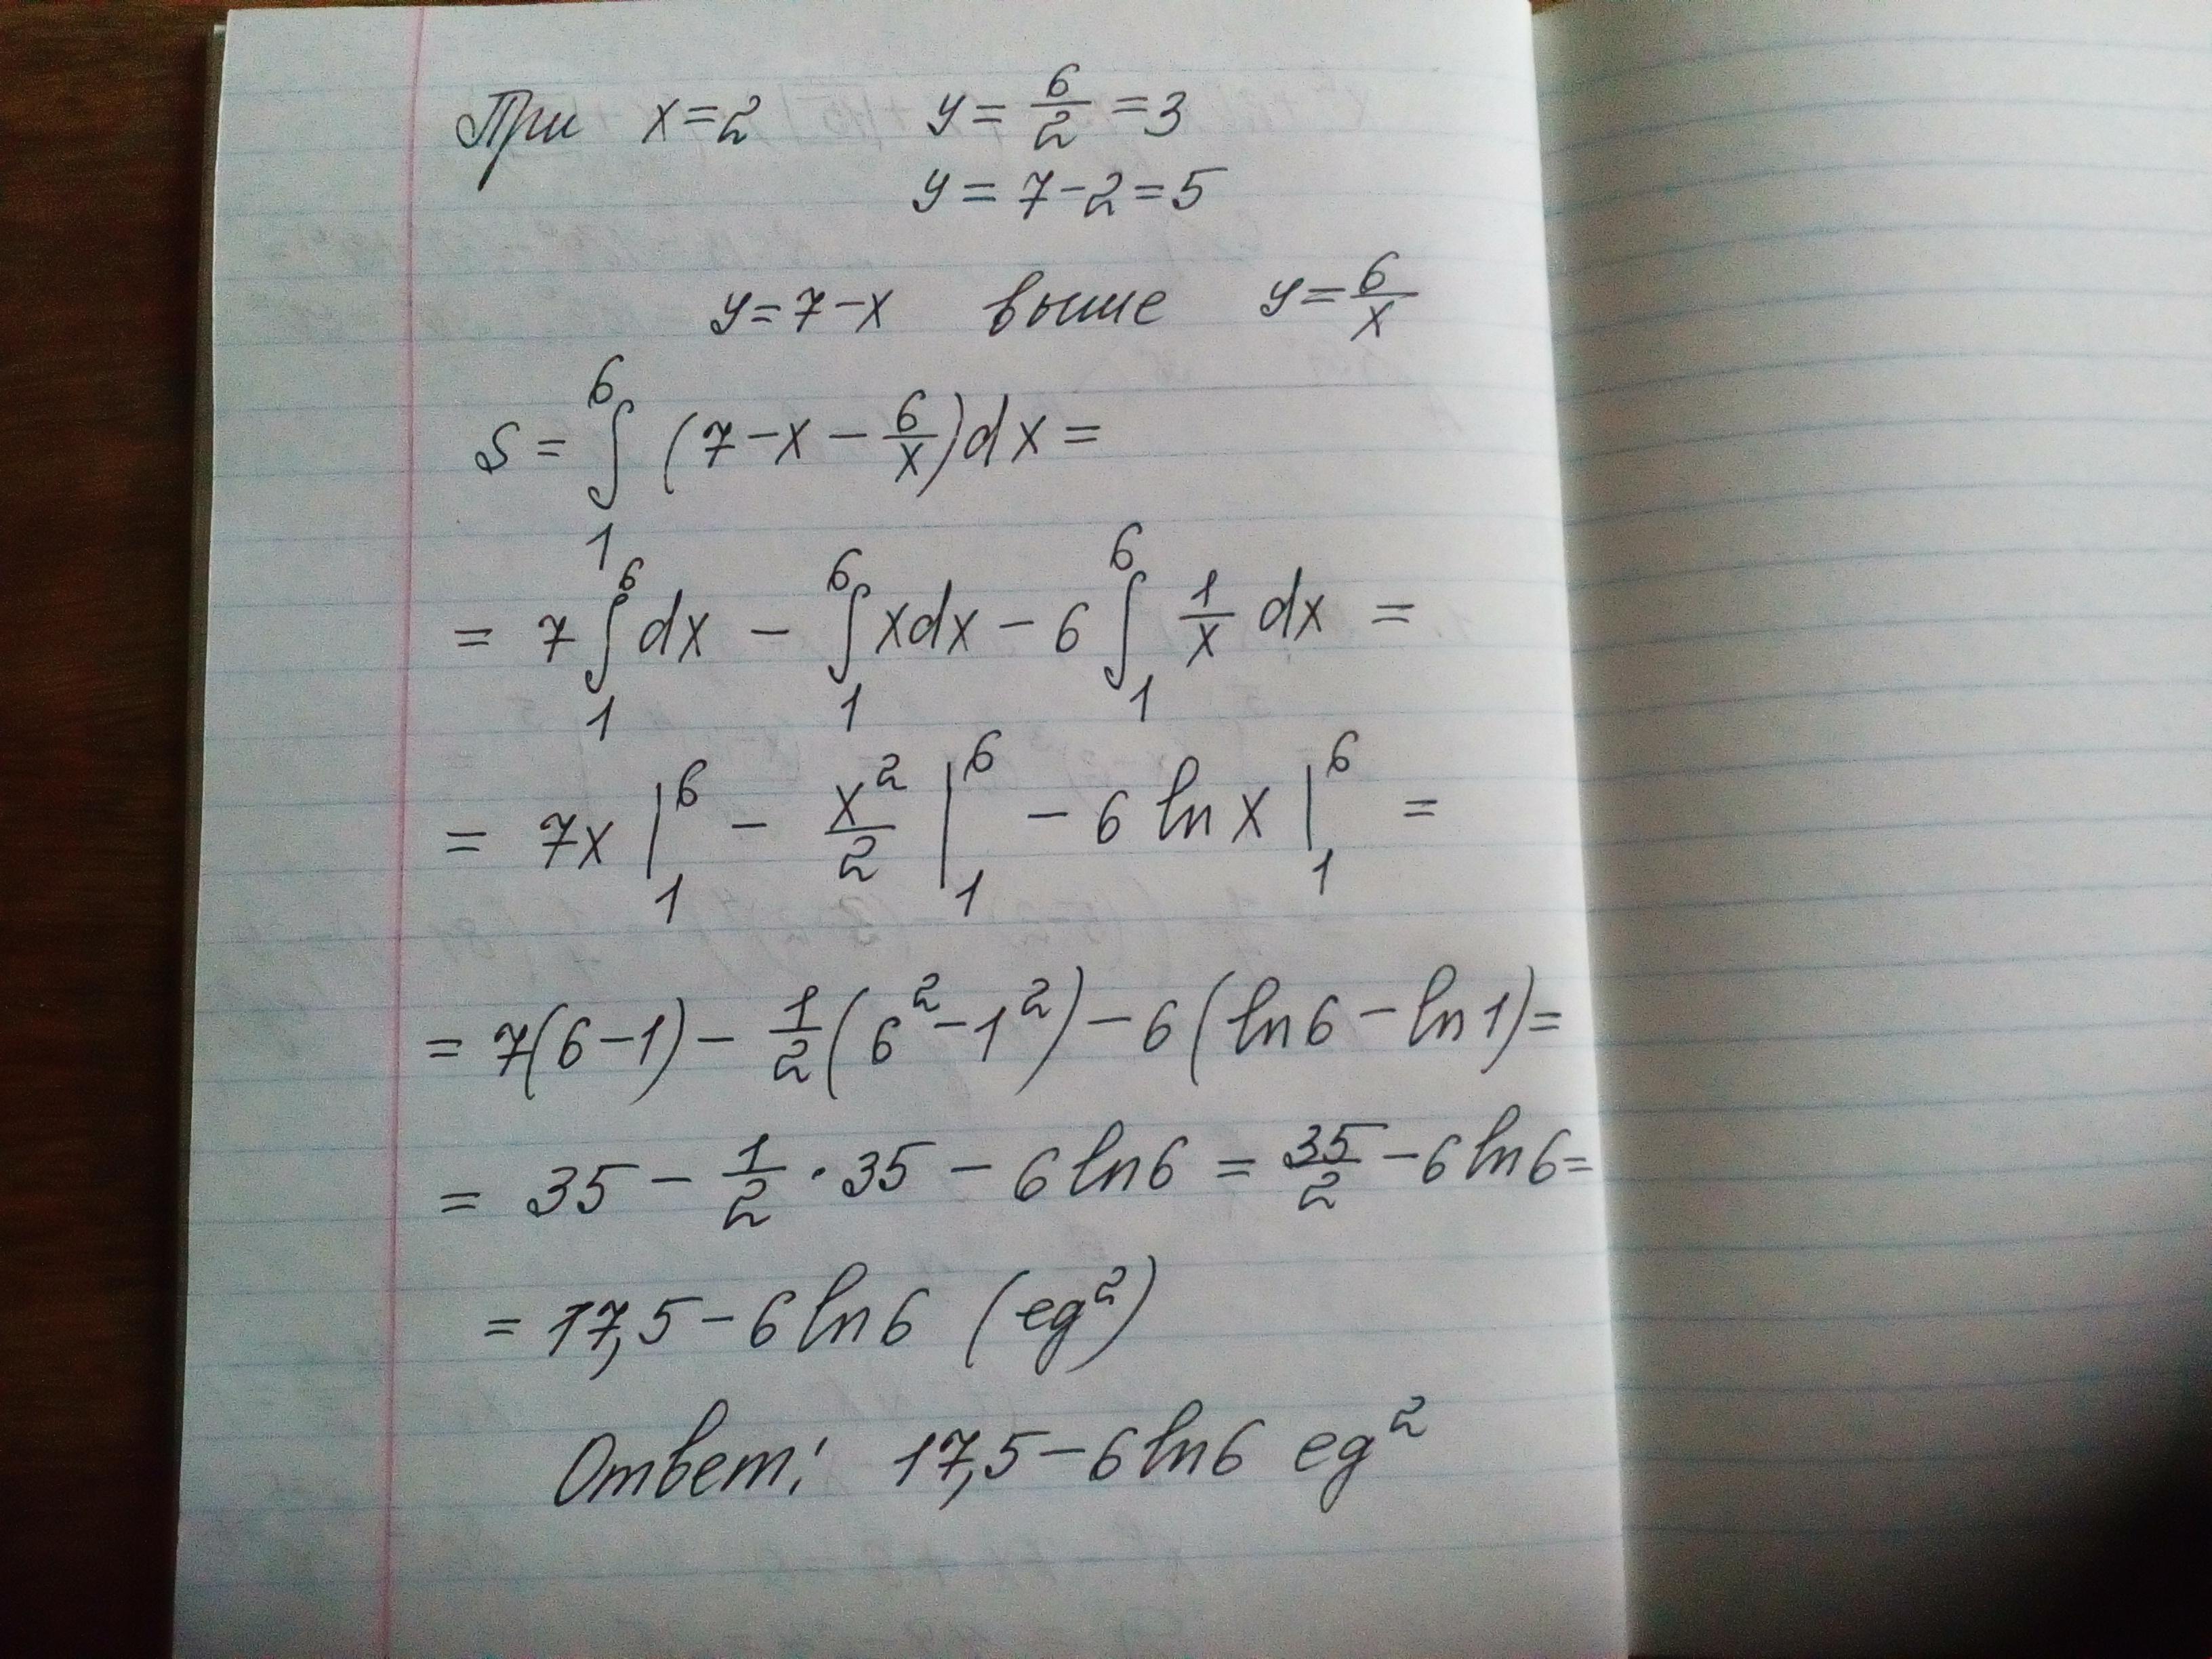 При x=2 y=6/2=3
y=7-2=5
y=7-x выше y=6/x
S=∫₁⁶(7-x-6/x)dx=
=7∫₁⁶dx-∫₁⁶xdx-6∫₁⁶1/x dx=
=7x|₁⁶-x²/2|₁⁶-6lnx|₁⁶=
=7(6-1)-1/2(6²-1²)-6(ln6-ln1)=
=35-1/2·35-6ln6=35/2-6ln6=
=17,5-6ln6 (ед²)
Ответ: 17,5-6ln6 ед²